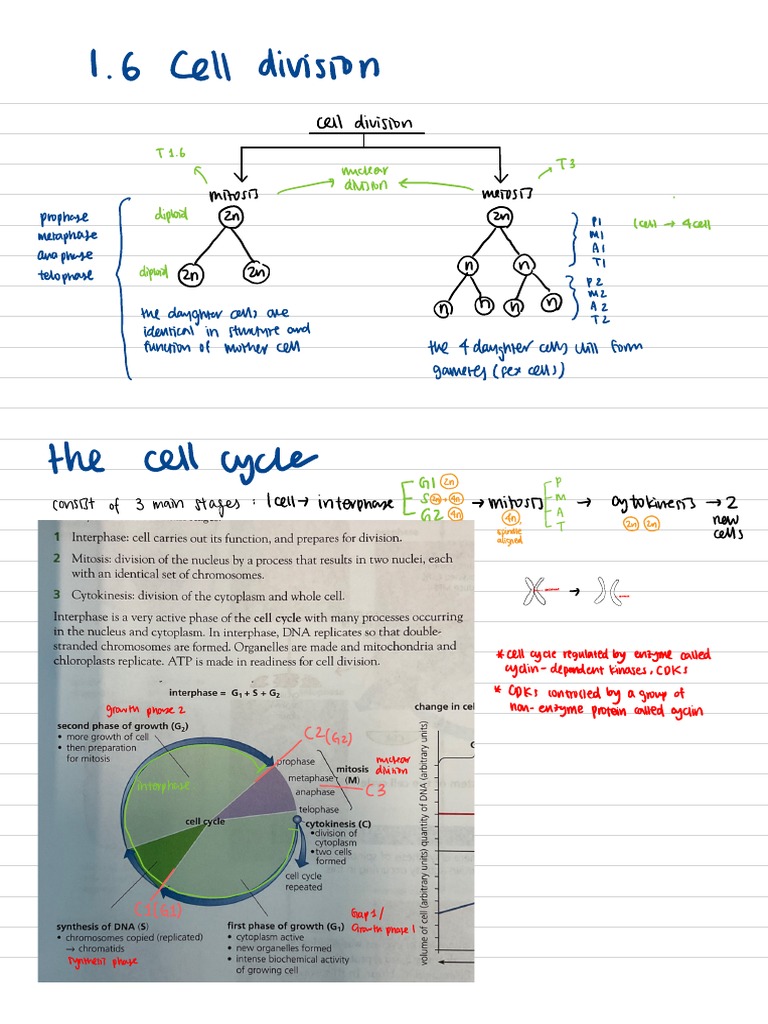 1.6 Cell division
cell division
T 1.6
nuclear
division
T3
mitosis
meiosis
prophase
metaphase
anaphase
telophase
diploid
2n
diploid
2n
2n
the daughter cells are
identical in structure and
function of mother cell
2n
n
n
n
n
n
n
P1
M1
A1
T1
P2
M2
A2
T2
1cell → 4cell
the 4 daughter cells will form
gametes (sex cells)
the cell cycle
consist of 3 main stages : 1 cell → interphase
G1 2n
S 2n → 4n
G2 4n
→ mitosis
4n
spindle
aligned
P
M
A
T
→ cytokinesis → 2
2n 2n
new
cells
1 Interphase: cell carries out its function, and prepares for division.
2 Mitosis: division of the nucleus by a process that results in two nuclei, each
with an identical set of chromosomes.
3 Cytokinesis: division of the cytoplasm and whole cell.
Interphase is a very active phase of the cell cycle with many processes occurring
in the nucleus and cytoplasm. In interphase, DNA replicates so that double-
stranded chromosomes are formed. Organelles are made and mitochondria and
chloroplasts replicate. ATP is made in readiness for cell division.
* cell cycle regulated by enzyme called
cyclin-dependent kinases, CDKs
* CDKs controlled by a group of
non-enzyme protein called cyclin
interphase = G1 + S + G2
growth phase 2
second phase of growth (G2)
• more growth of cell
• then preparation
for mitosis
C2 (G2)
interphase
prophase
metaphase
anaphase
telophase
mitosis
(M)
nuclear
division
C3
cell cycle
cytokinesis (C)
• division of
cytoplasm
• two cells
formed
cell cycle
repeated
C1 (G1)
synthesis of DNA (S)
• chromosomes copied (replicated)
→ chromatids
synthesis phase
first phase of growth (G1)
Gap 1 /
Growth phase 1
• cytoplasm active
• new organelles formed
• intense biochemical activity
of growing cell
change in cel
volume of cell (arbitrary units) quantity of DNA (arbitrary units)